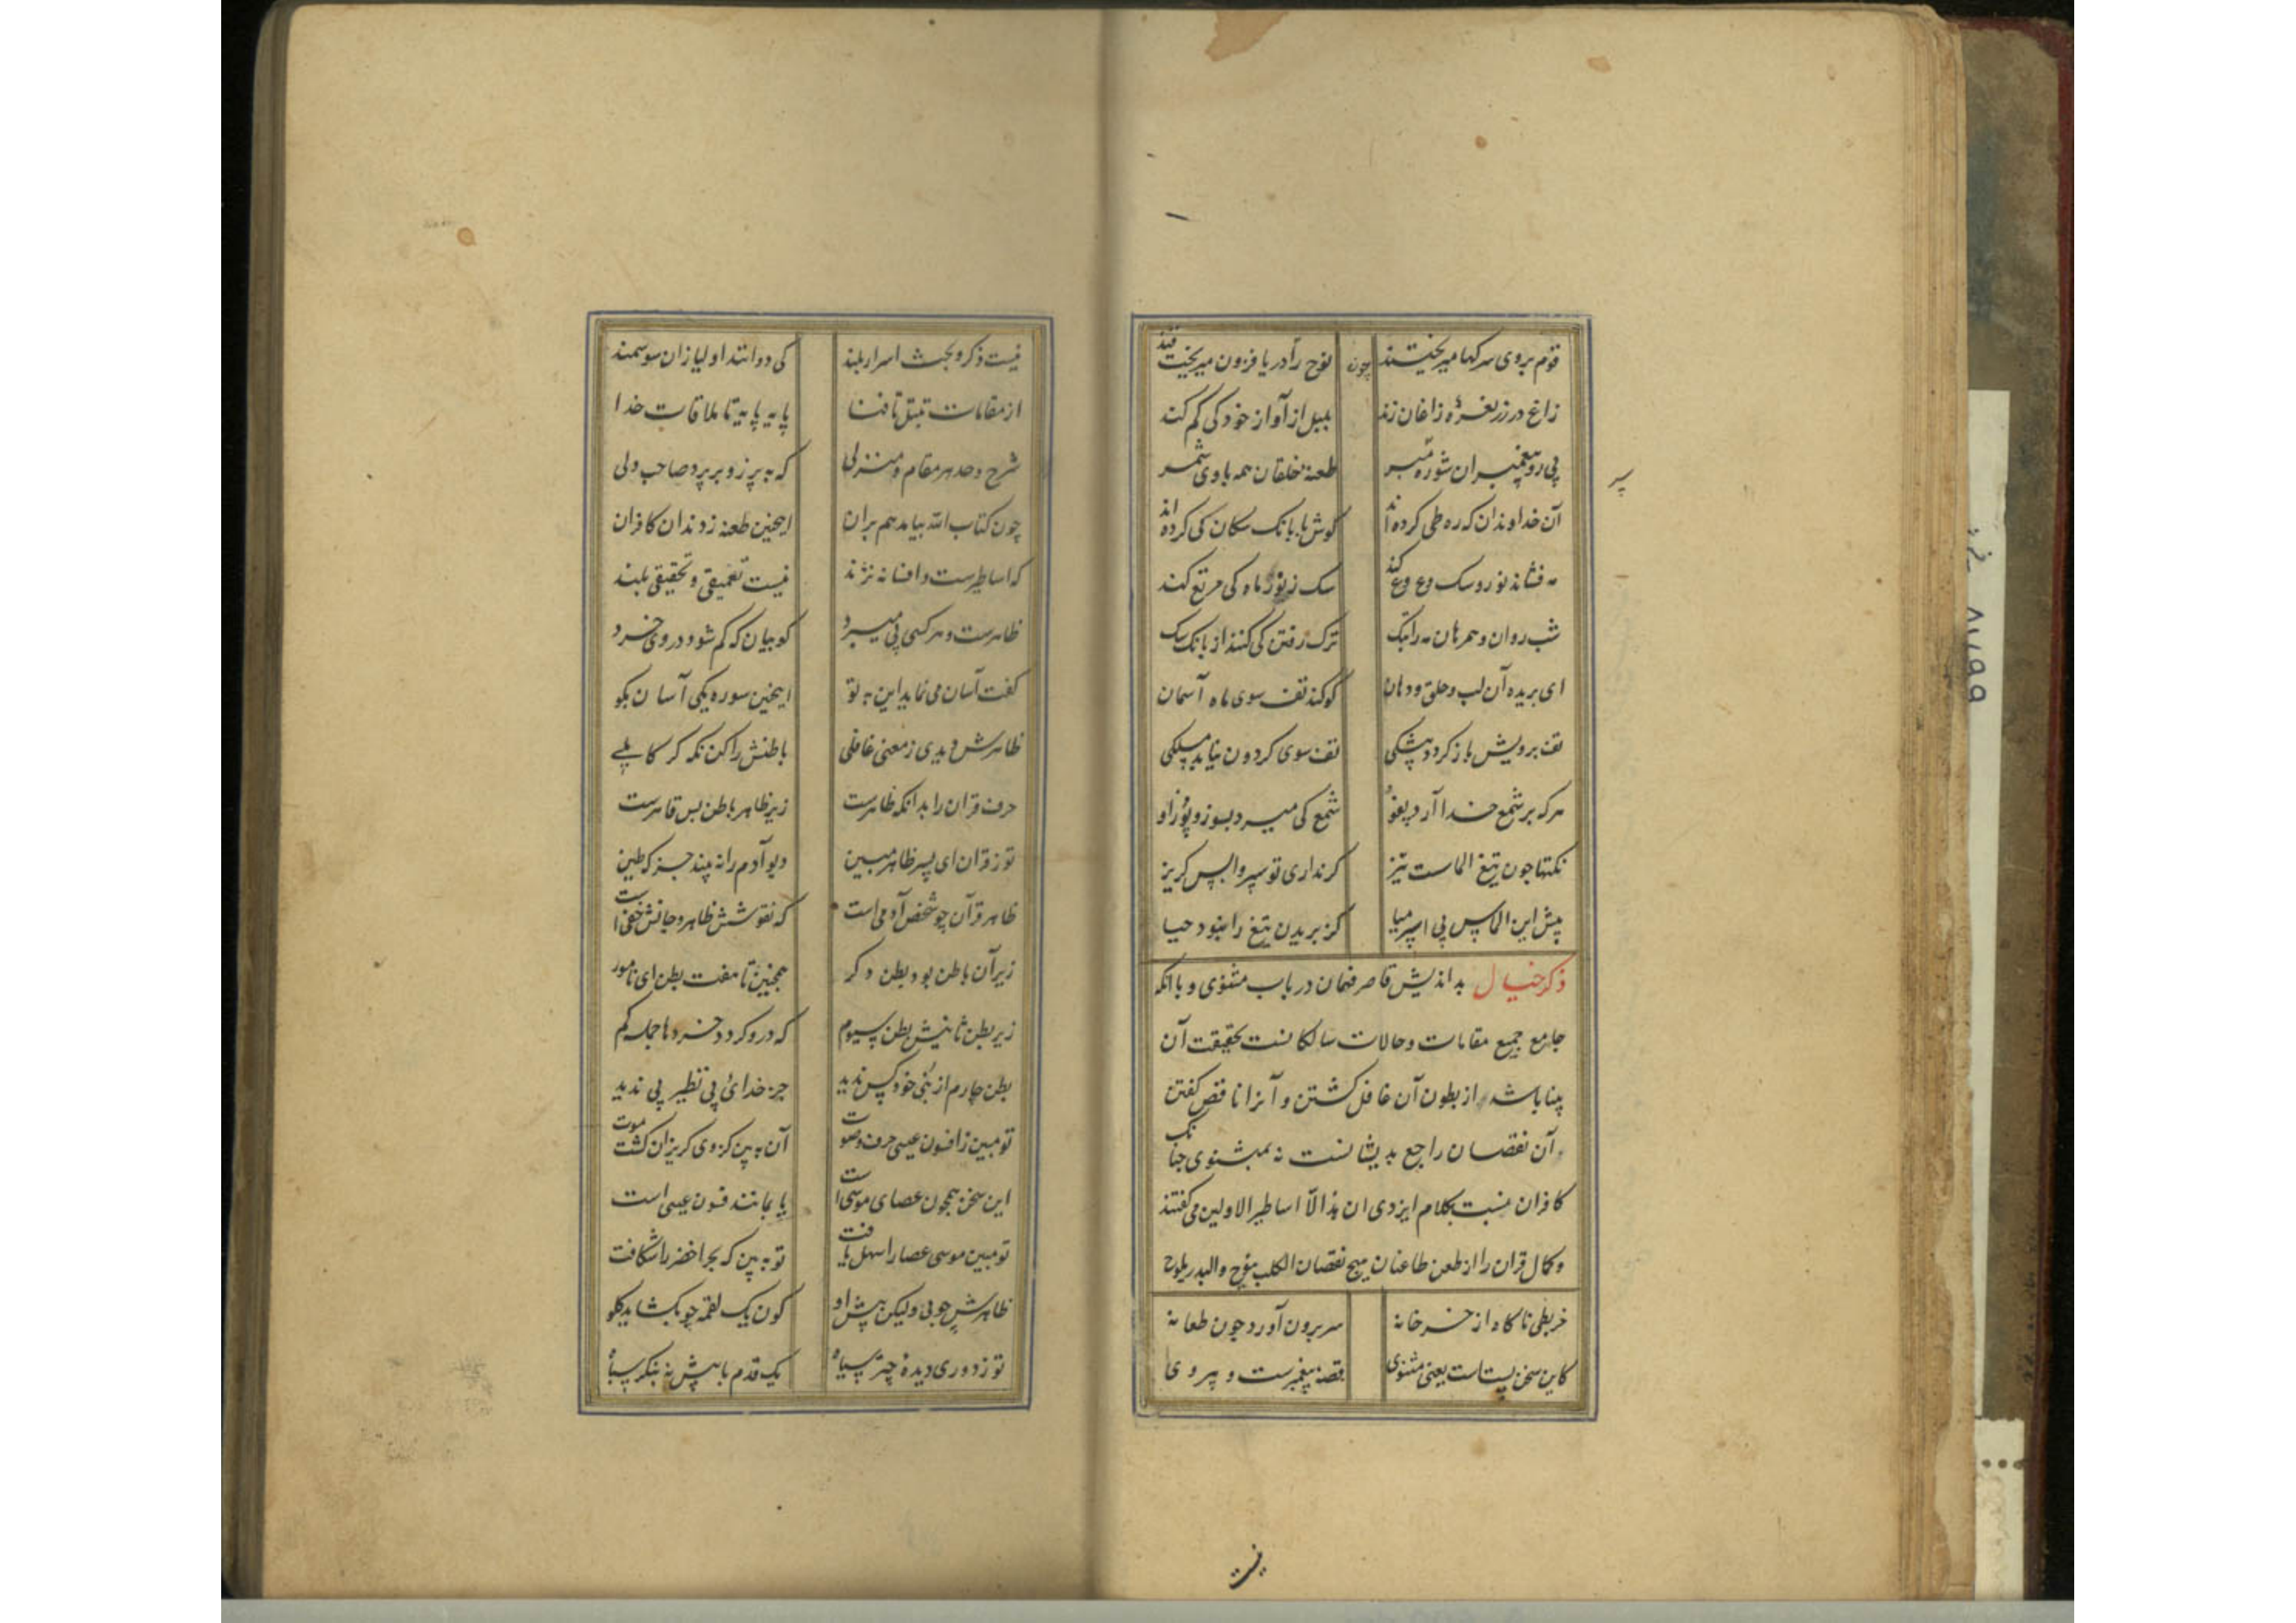 قوم بروی سرکها میریختند چون نوح را دریا فزون میریخت قند
زاغ در رز نعره زاغان زند بلبل از آواز خود کی کم کند
پی رو پیغمبران شو ره سپر طعنه خلقان همه بادی شمر
آن خداوندان که ره طی کرده اند گوش با بانک سکان کی کرده اند
مه فشاند نور و سک وع وع کند سک ز نور ماه کی مرتع کند
شب روان و همرهان مه را بتک ترک رفتن کی کنند از بانک سک
ای بریده آن لب و حلق و دهان کو کند تف سوی ماه آسمان
تف برویش باز کردد پیشکی تف سوی کردون نیابد مسلکی
هرکه بر شمع خدا آرد پفو شمع کی میرد بسوزد پوز او
نکتها چون تیغ الماست تیز کر نداری تو سپر واپس کریز
پیش این الماس پی اسپر میا کز بریدن تیغ را نبود حیا
ذکر خیال بد اندیش قاصر فهمان در باب مثنوی و با آنکه
جامع جمیع مقامات و حالات سالکانست بحقیقت آن
بینا باشد از بطون آن غافل کشتن و آنرا ناقص کفتن
آن نقصان راجع بدیشانست نه بمثنوی چنانک
کافران نسبت بکلام ایزدی ان هذا الا اساطیر الاولین می کفتند
و کمال قران را از طعن طاعنان هیچ نقصان الکلب ینبح والبدر یلوح
خربطی ناکاه از خرخانه سر برون آورد چون طعانه
کاین سخن پستاست یعنی مثنوی قصه پیغمبرست و پیروی
نیست
پر
نیست ذکر و بحث اسرار بلند کی دوانند اولیا زان سو سمند
از مقامات تبتل تا فنا پایه پایه تا ملاقات خدا
شرح و حد هر مقام و منزلی که به پر زو بر پرد صاحب دلی
چون کتاب الله بیامد هم بران اینچنین طعنه زدند ان کافران
که اساطیرست و افسانه نژند نیست تعمیقی و تحقیقی بلند
ظاهرست و هر کسی پی میبرد کو بیان که کم شود در وی خرد
کفت آسان می نماید این به تو اینچنین سوره یکی آسان بکو
ظاهرش دیدی ز معنی غافلی باطنش را کن نکه کر کاملی
حرف قران را بدانکه ظاهرست زیر ظاهر باطن بس قاهرست
تو ز قران ای پسر ظاهر مبین دیو آدم را نه بیند جز که طین
ظاهر قرآن چو شخص آدمی است که نقوشش ظاهر و جانش خفی است
زیر آن باطن بود بطن دکر همچنین تا هفت بطن ای نامور
زیر بطن ثانیش بطن سیوم که درو کردد خردها جمله کم
بطن چارم از نبی خود کس ندید جز خدای بی نظیر بی ندید
تو مبین ز افسون عیسی حرف و صوت آن به بین کز وی کریزان کشت موت
این سخن همچون عصای موسی است یا بمانند فسون عیسی است
تو مبین موسی عصا را سهل یافت تو به بین که بحر اخضر را شکافت
ظاهرش چوبی ولیکن پیش او کون یک لقمه چو بکشاید کلو
تو ز دوری دیده چتر سیاه یک قدم با پیش نه بنکر سپاه